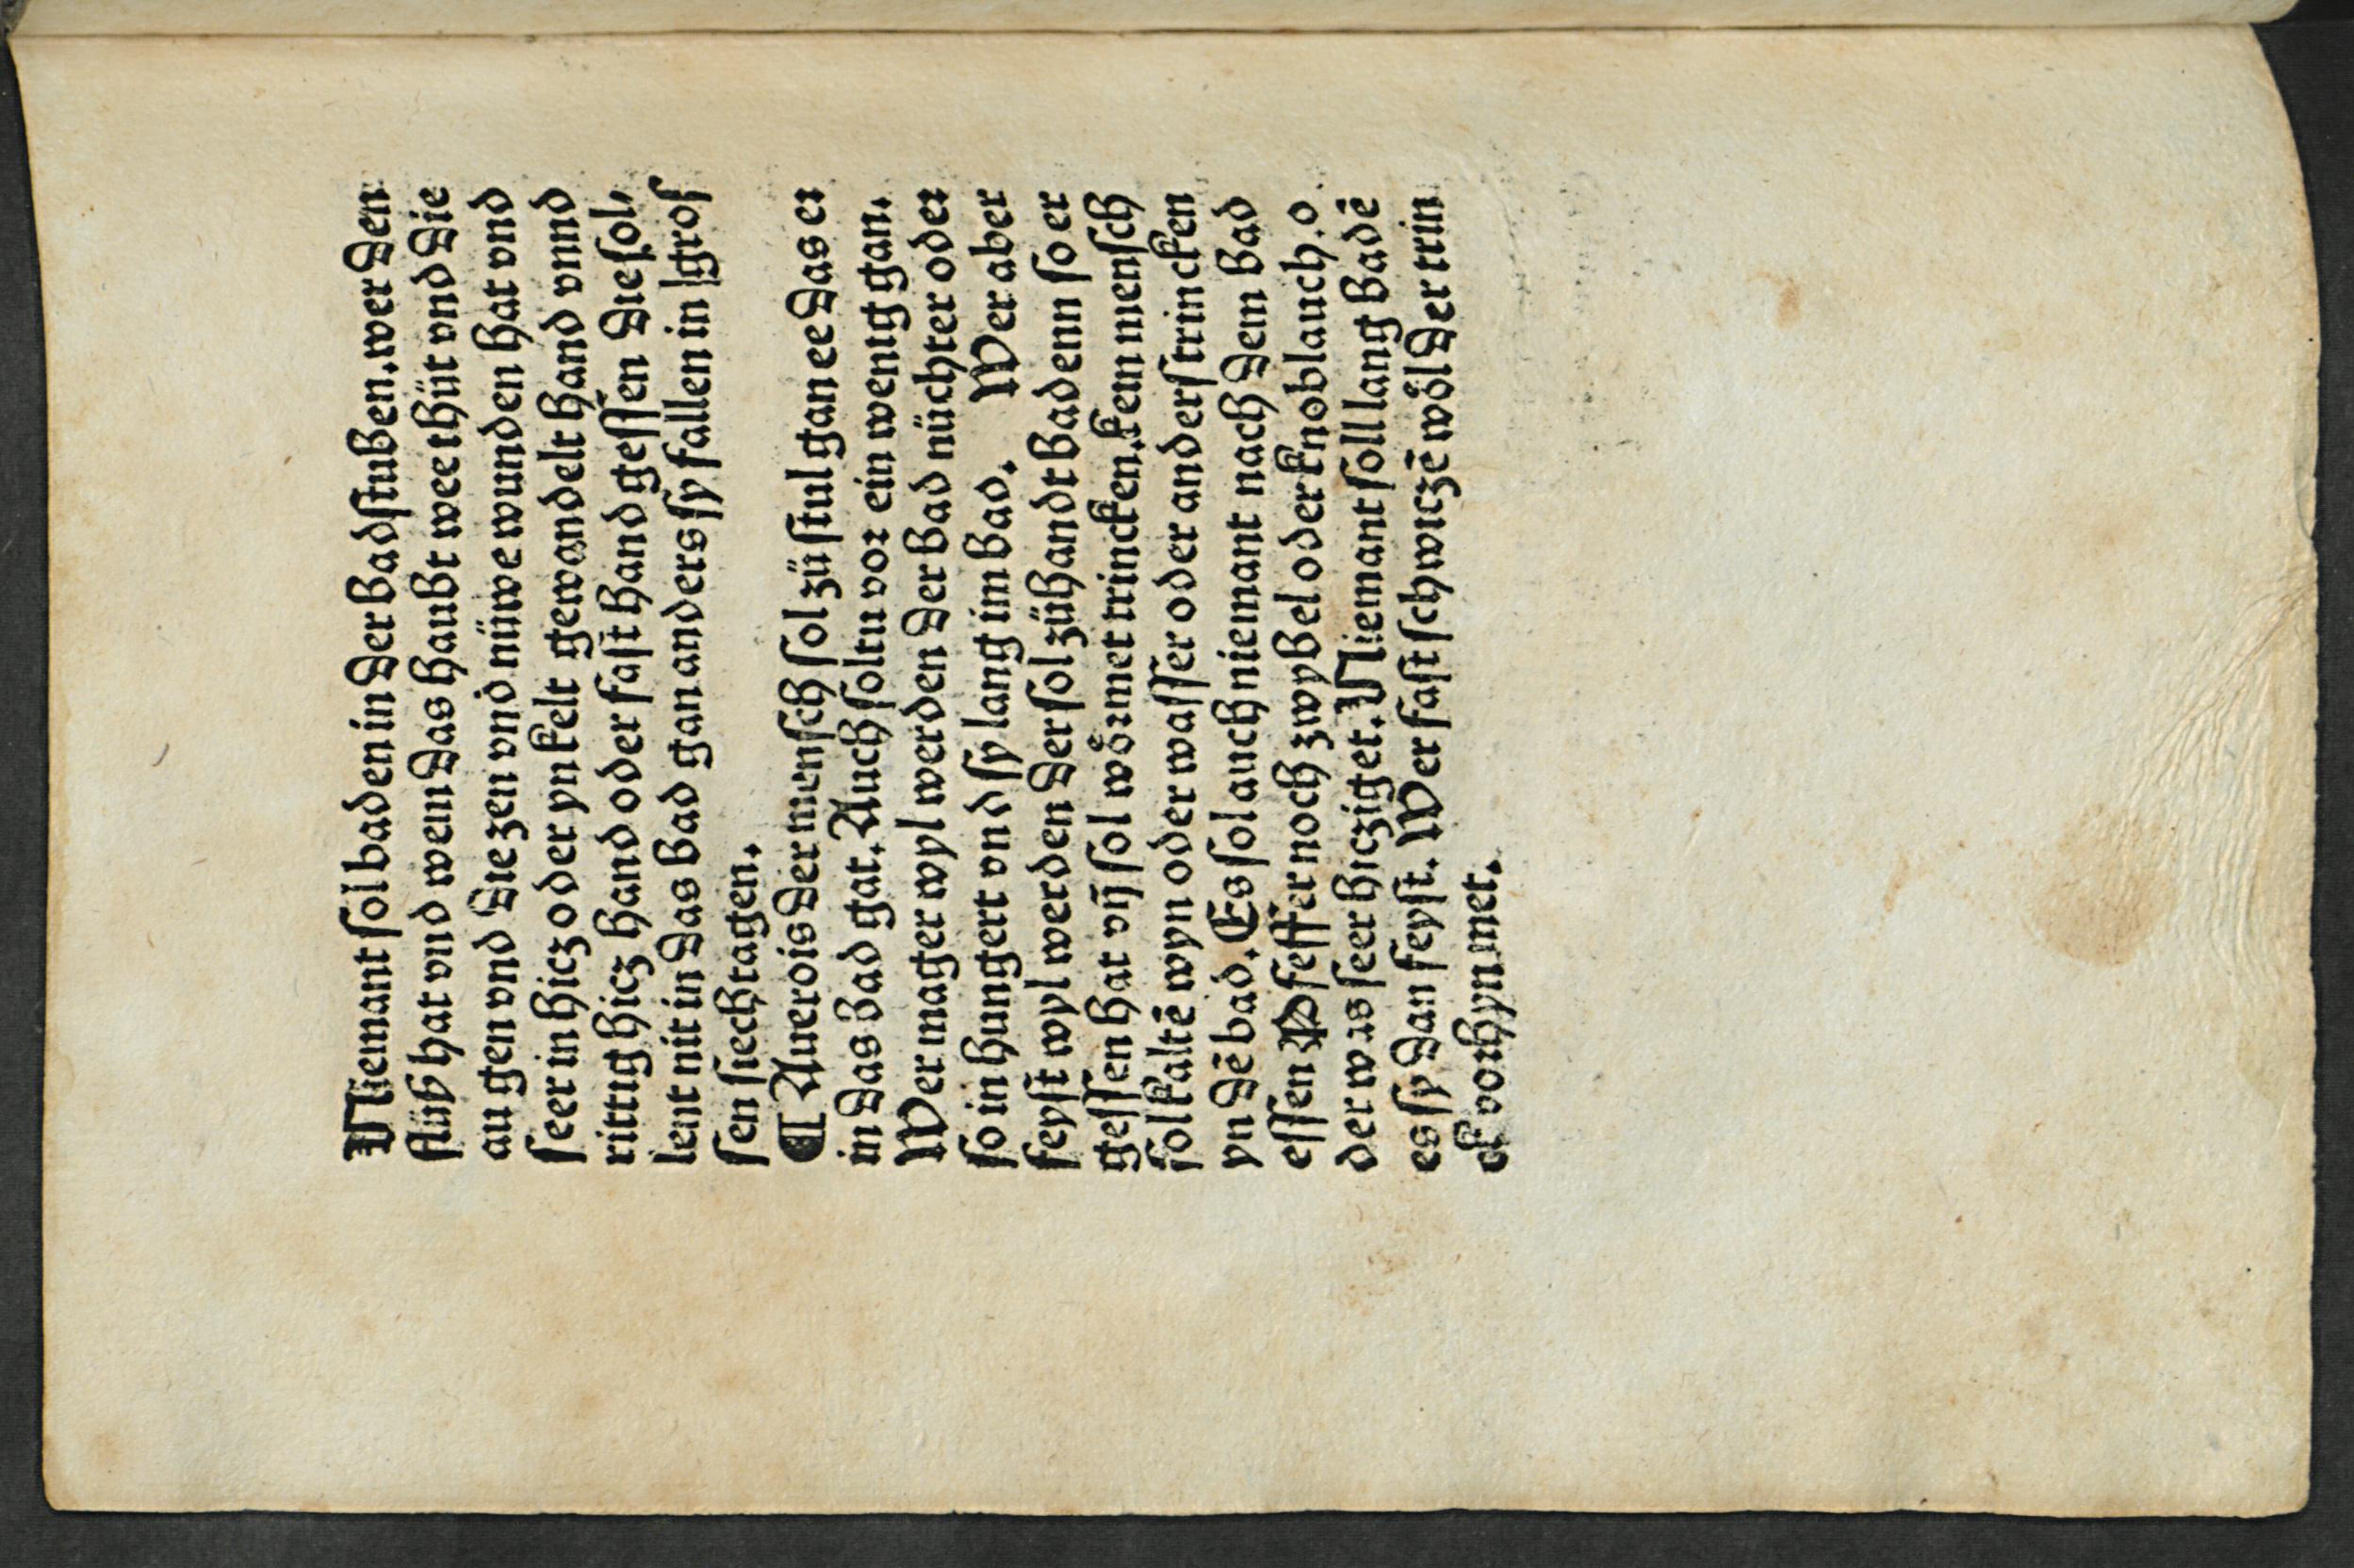 Niemant sol baden in der badstuben. wer den
flüß hat vnd wem das haubt wee thüt vnd die
augen vnd die zen vnd nüwe wunden hat vnd
seer in hicz oder yn kelt gewandelt hand vnnd
rittig hicz hand oder fast hand gessen die sol⸗
lent nit in das bad gan anders sy fallen in groß
sen siechtagen.
¶ Auerois der mensch sol zü stul gan ee das er
in das bad gat. Auch soltu vor ein wenig gan.
Wer mager wyl werden der bad nüchter oder
so in hungert vnd sy lang im bad. Wer aber
feyst wyl werden der sol zühandt baden so er
gessen hat vn̄ sol woͤrmet trincken. kein mensch
sol kaltē wyn oder wasser oder anders trincken
yn dē bad. Es sol auch niemant nach dem bad
essen Pfeffer noch zwybel oder knoblauch. o
der was seer hicziget. Niemant soll lang badē
es sy dan feyst. Wer fast schwiczē woͤl der trin
ck vorhyn met.